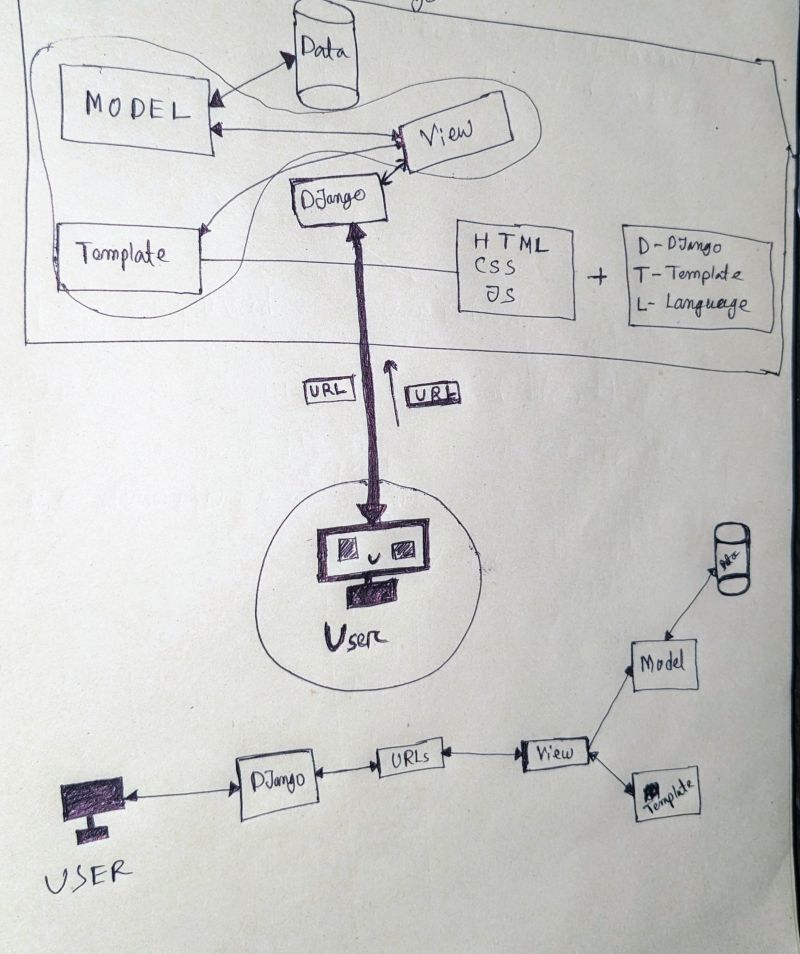 Data
MODEL
View
DJango
Template
HTML
CSS
JS
+
D-DJango
T-Template
L-Language
URL
URL
User
Data
Model
USER
DJango
URLs
View
Template